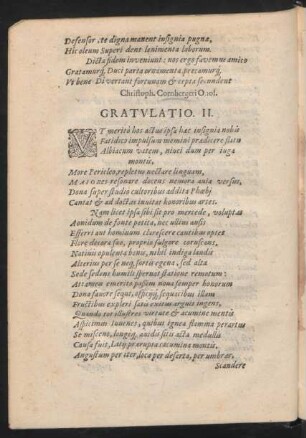 Defensor, te digna manent insignia pugnæ,
Hic oleum Superi dent lenimenta laborum.
Dicta fidem inveniunt: nos ergo favemus amico
Gratamurq, Duci parta ornamenta, precamur,
Ut bene Di vertant fortunam & cepta secundent
Christoph. Cornbergeri O.vol.
GRATVLATIO. II.
VT meritò hos actus ipsa hac insignia nobis
Fatidico impulsum memini prædicere flatu
Albiacum vatem, nivei dum per iuga
montis,
More Pericleo, repletus nectare linguam,
MAIORES resonare docens nemora avia versus,
Dona super studii cultoribus addita Phœbi
Cantat & ad doctas invitat honoribus artes.
Nam licet ipsa sibi sit pro mercede, voluptas
Aonidum de fonte potita, nec ullius ausis
Efferri aut hominum clarescere cantibus optet
Flore decora suo, proprio fulgore coruscans,
Nativis opulenta bonis, nihil indiga laudis
Alterius per se neq, sortis egens, sed alta
Sede sedens humili spernat statione remotum:
Attamen emerito passim nona semper honorum
Dona favere sequi, aspicijq, sequacibus illam
Fructibus expleri satu exitum arguit ingens,
Quando tot illustres virtute & acumine mentis
Aspicimus Iuvenes, quibus ignea flamma per artus
Se miscens, longæq, avidis sitis acta medullis
Causa fuit, Latij prærupta cacumina montis,
Augustum per iter, loca per deserta, per umbras,
Scandere